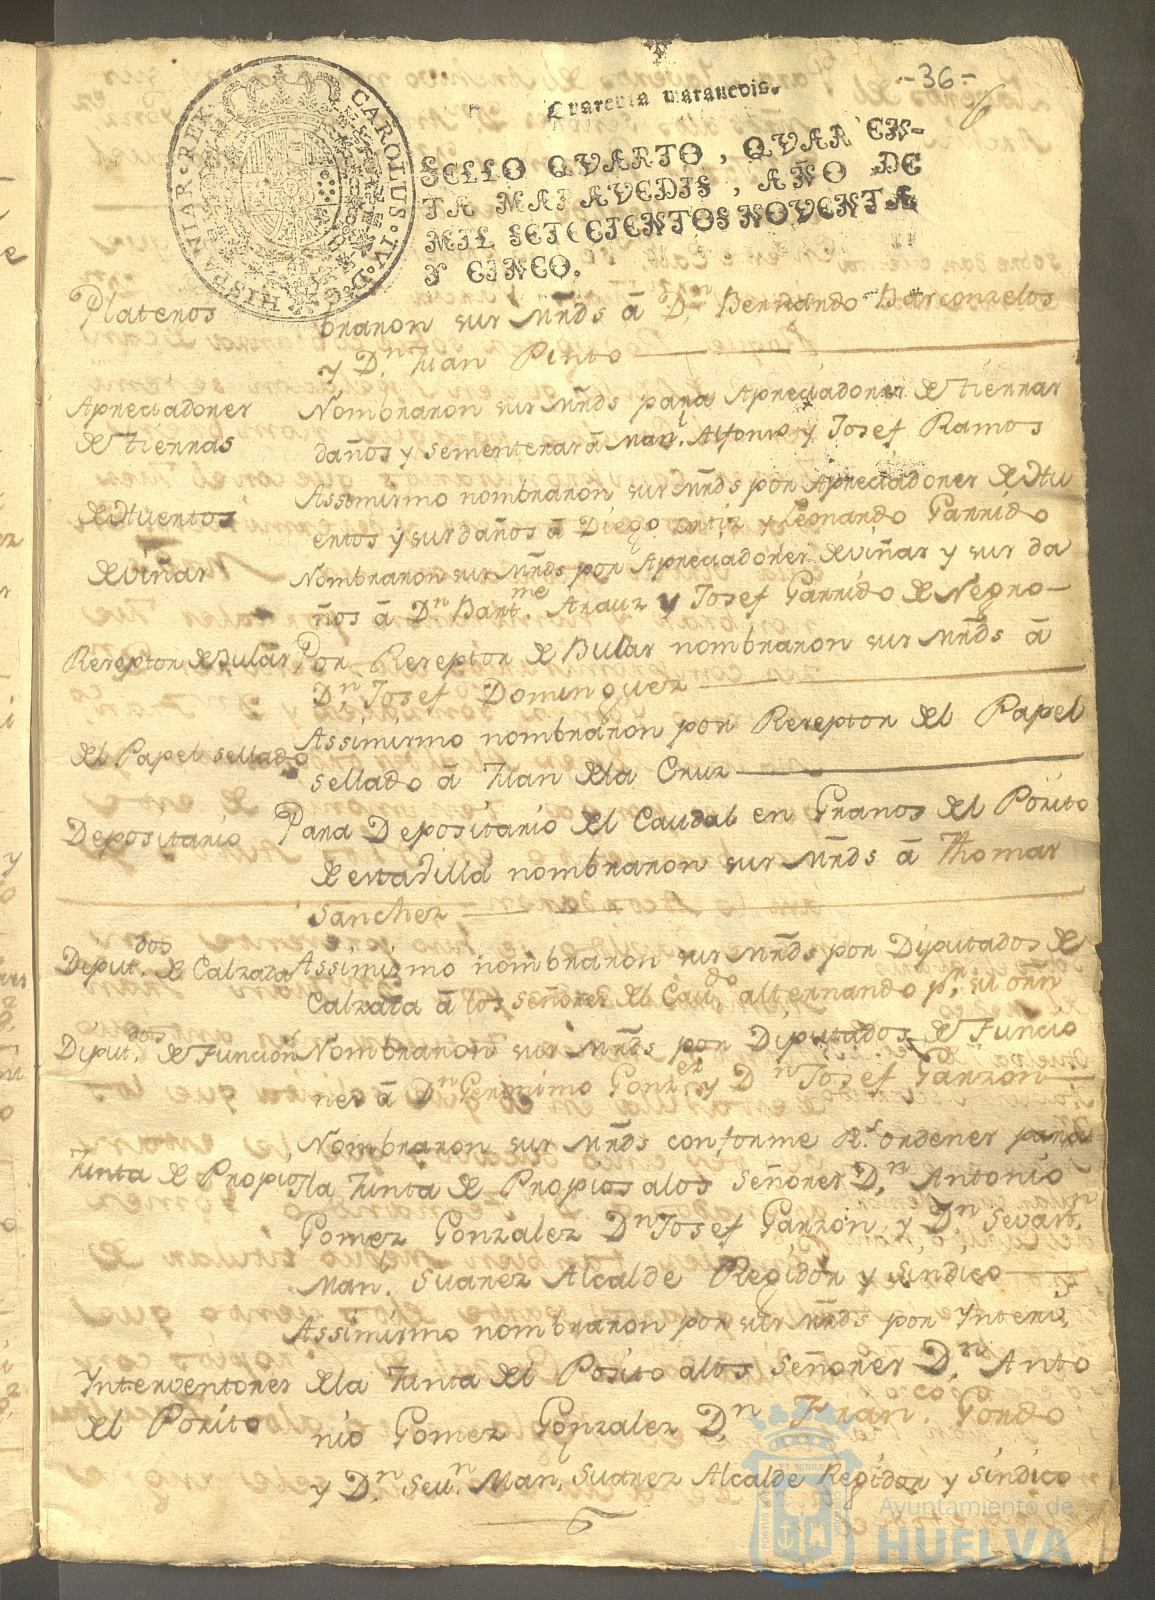 -36-
Quarenta marauedis.
SELLO QVARTO, QVAREN-
TA MARAVEDIS, AÑO DE
MIL SETECIENTOS NOVENTA
Y CINCO.
CAROLUS·IV·D·G· HISPANIAR·REX·
Plateros braron sus Mr̃ds â D.n Bernardo Barconzelos
y D.n Juan Pinto
Apreciadores Nombraron sus Mr̃ds para Apreciadores de tierras
de tierras daños y sementeras â Man.l Alfonso y Josef Ramos
Assimismo nombraron sus Mr̃ds por Apreciadores de Hu
de Huertos ertos y sus daños â Diego Ortiz y Leonardo Garrido
de viñas Nombraron sus Mr̃ds por Apreciadores de viñas y sus da
ños â D.n Bart.me Arauz y Josef Garrido de Negro-
Rezeptor de Bulas Por Rezeptor de Bulas nombraron sus Mr̃ds â
D.n Josef Dominguez
Assimismo nombraron por Rezeptor del Papel
del Papel sellado sellado â Juan dela Cruz
Depositario Para Depositario del Caudal en Granos del Pozito
de esta villa nombraron sus Mr̃ds â Thomas
Sanchez
Diput.dos de Calzada Assimismo nombraron sus Mr̃ds por Diputados de
Calzada â los señores del Cau.do alternando p.r su orñ
Diput.dos de Funcion Nombraron sus Mr̃ds por Diputados de Funcio
nes â D.n Geronimo Gonz.ez y D.n Josef Garzon
Nombraron sus Mr̃ds conforme R.s ordenes para
Junta de Propios la Junta de Propios alos señores D.n Antonio
Gomez Gonzalez D.n Josef Garzon, y D.n Sevast.n
Man.l Suarez Alcalde Regidor y Sindico
Assimismo nombraron por sus Mr̃ds por Ynterv.s
Ynterventores dela Junta del Posito alos Señores D.n Anto
del Pozito nio Gomez Gonzalez D.n Fran.co Gordo
y D.n Sev.n Man.l Suarez Alcalde Regidor y Sindico
Ayuntamiento de
HUELVA